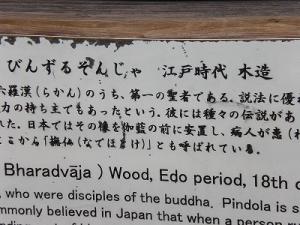 びんずるそんじゃ 江戸時代 木造
六羅漢(らかん)のうち、第一の聖者である。説法に優れ
力の持ち主でもあったという。彼には種々の伝説があ
れた。日本ではその像を伽藍の前に安置し、病人が患(
ここから「撫仏(なでぼとけ)」とも呼ばれている。
Bharadvāja ) Wood, Edo period, 18th c
, who were disciples of the buddha. Pindola is s
mmonly believed in Japan that when a person